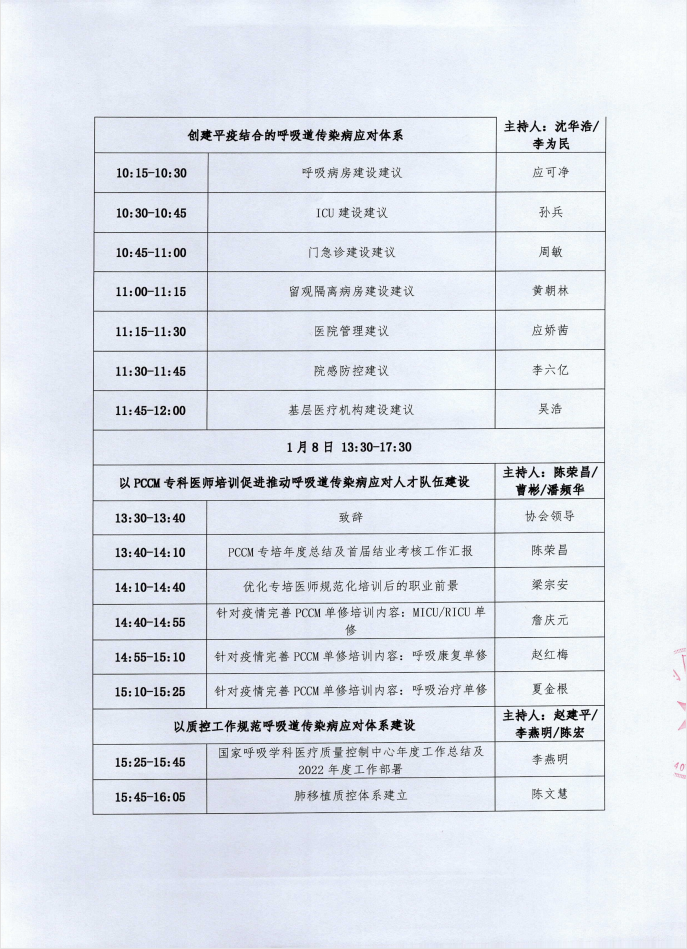 创建平疫结合的呼吸道传染病应对体系
主持人：沈华浩/
李为民
10:15-10:30 呼吸病房建设建议 应可净
10:30-10:45 ICU 建设建议 孙兵
10:45-11:00 门急诊建设建议 周敏
11:00-11:15 留观隔离病房建设建议 黄朝林
11:15-11:30 医院管理建议 应娇茜
11:30-11:45 院感防控建议 李六亿
11:45-12:00 基层医疗机构建设建议 吴浩
1 月 8 日 13:30-17:30
以 PCCM 专科医师培训促进推动呼吸道传染病应对人才队伍建设
主持人：陈荣昌/
曹彬/潘频华
13:30-13:40 致辞 协会领导
13:40-14:10 PCCM 专培年度总结及首届结业考核工作汇报 陈荣昌
14:10-14:40 优化专培医师规范化培训后的职业前景 梁宗安
14:40-14:55 针对疫情完善 PCCM 单修培训内容：MICU/RICU 单
修 詹庆元
14:55-15:10 针对疫情完善 PCCM 单修培训内容：呼吸康复单修 赵红梅
15:10-15:25 针对疫情完善 PCCM 单修培训内容：呼吸治疗单修 夏金根
以质控工作规范呼吸道传染病应对体系建设
主持人：赵建平/
李燕明/陈宏
15:25-15:45 国家呼吸学科医疗质量控制中心年度工作总结及
2022 年度工作部署 李燕明
15:45-16:05 肺移植质控体系建立 陈文慧